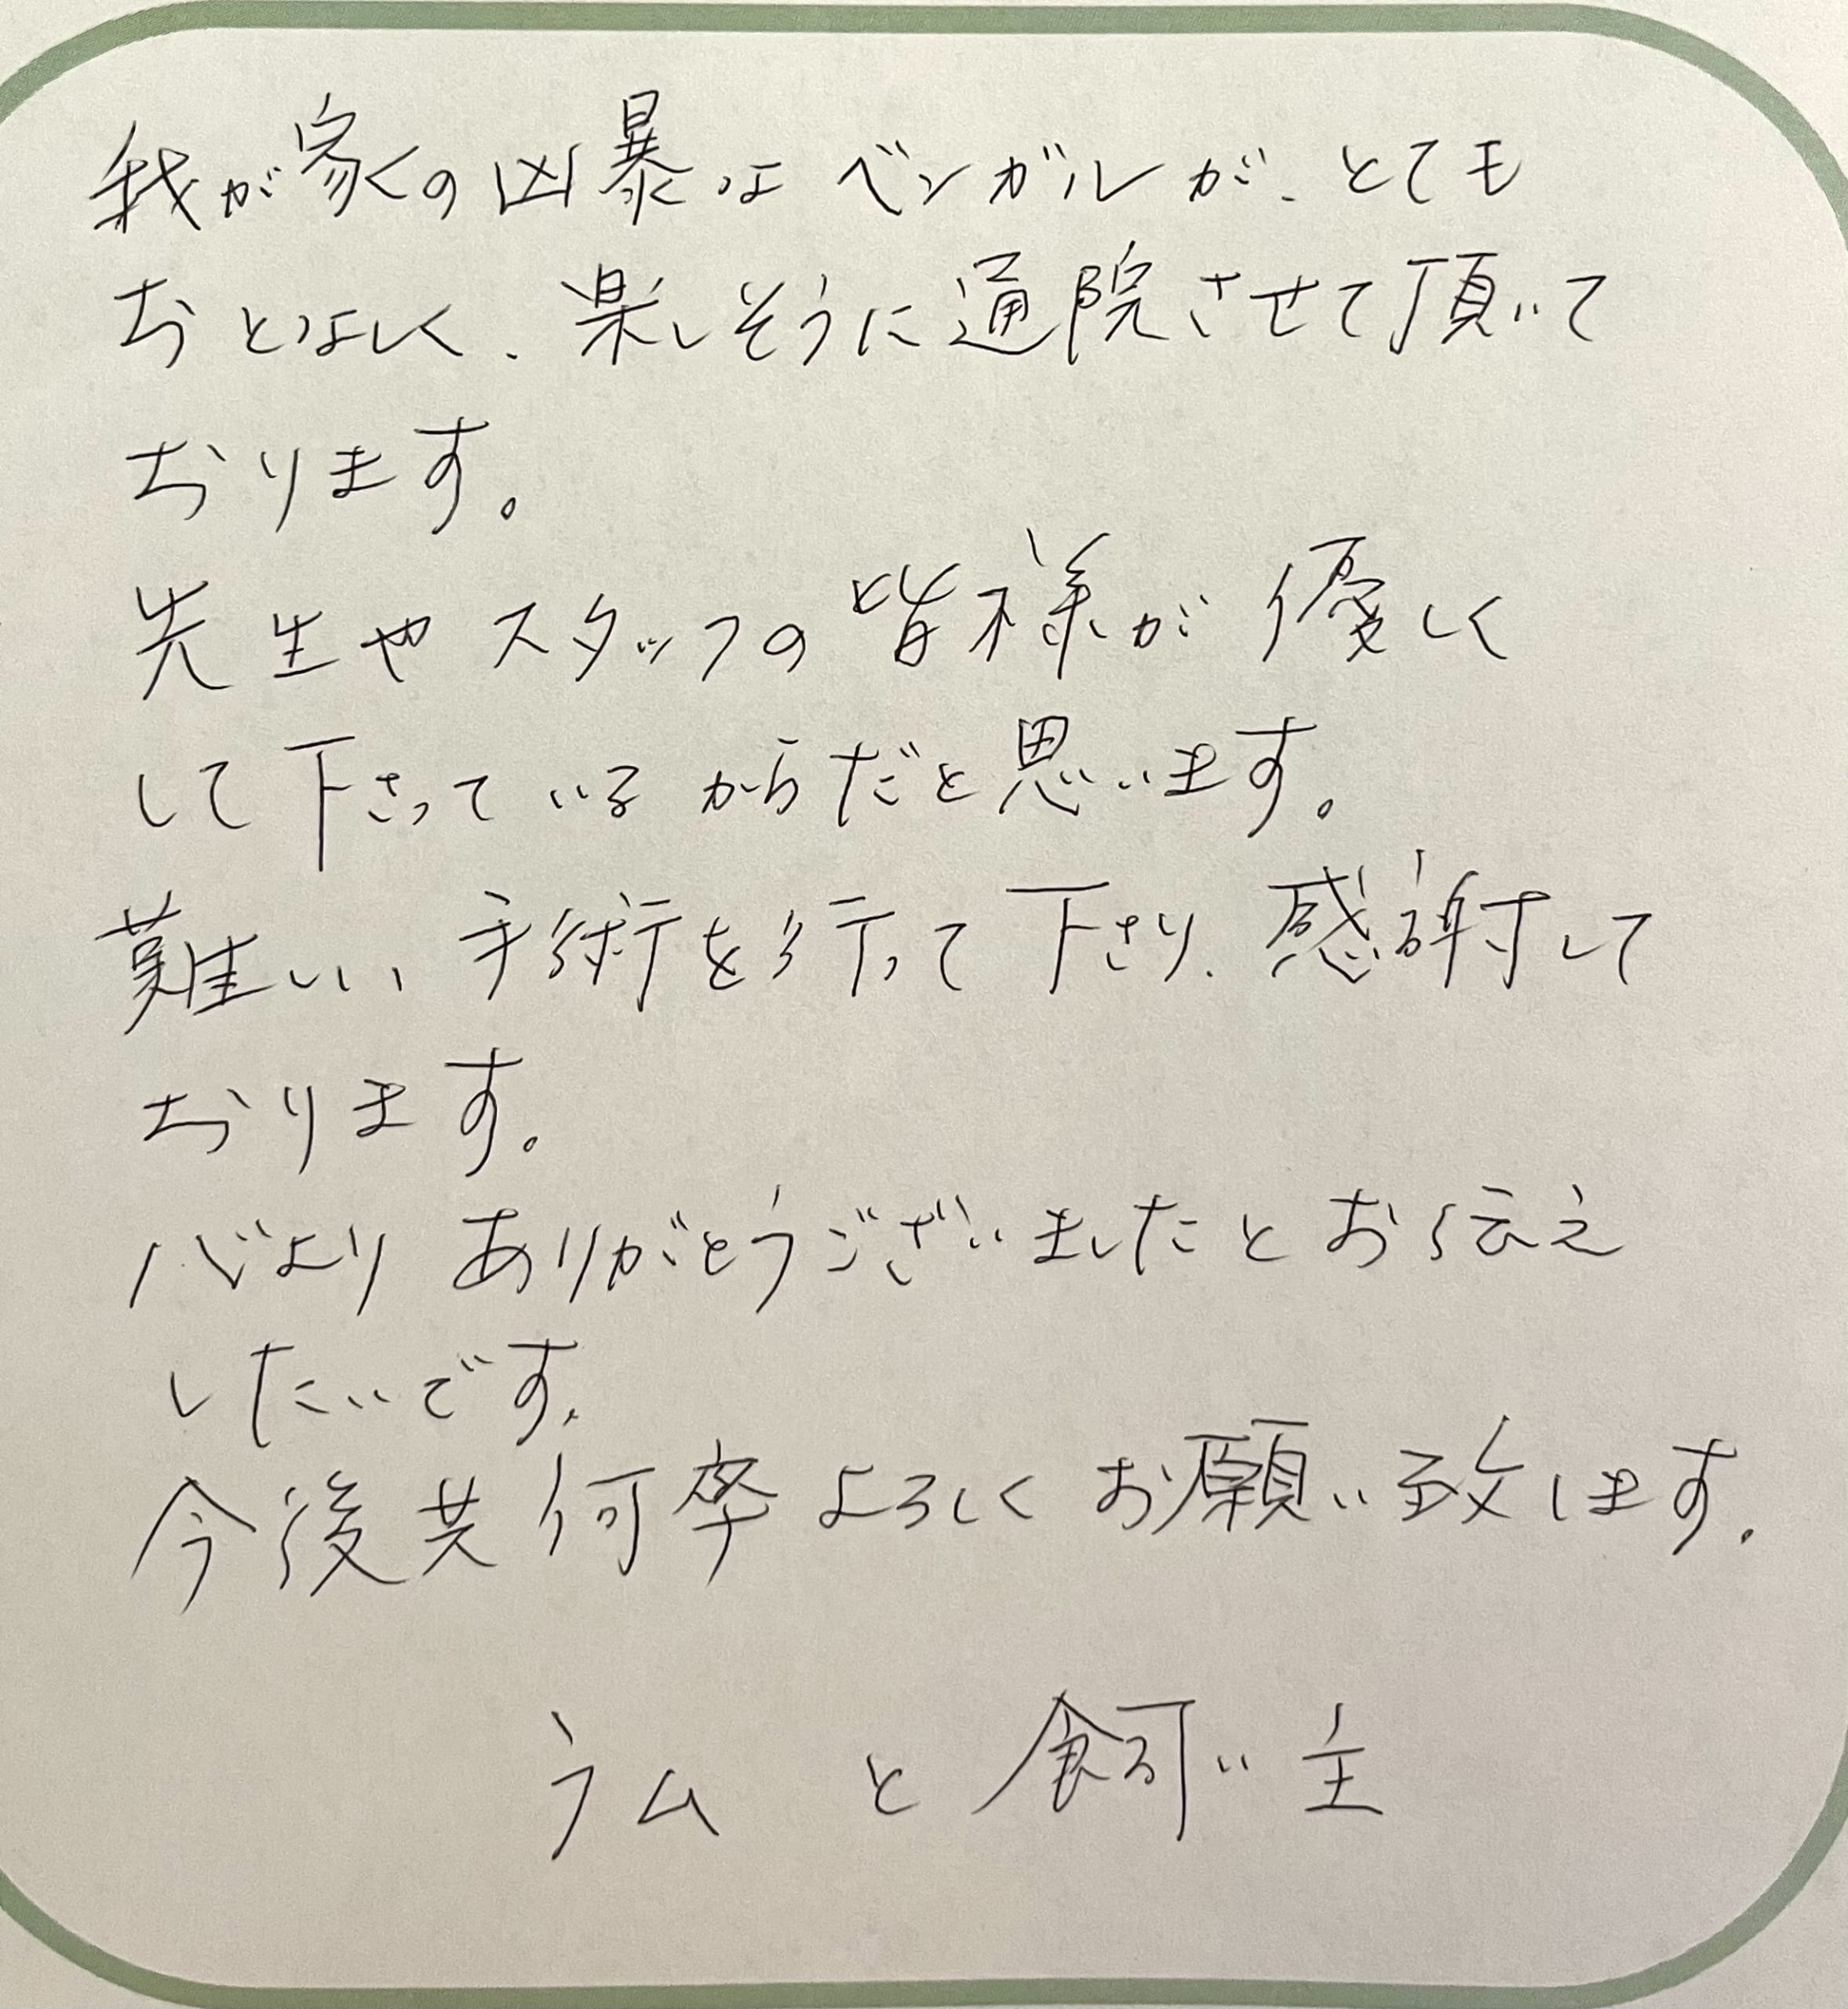 我が家の凶暴なベンガルが、とても
おとなしく、楽しそうに通院させて頂いて
おります。
先生やスタッフの皆様が優しく
して下さっているからだと思います。
難しい手術を行って下さり、感謝して
おります。
心よりありがとうございましたとお伝え
したいです。
今後共何卒よろしくお願い致します。
ラム と 飼い主